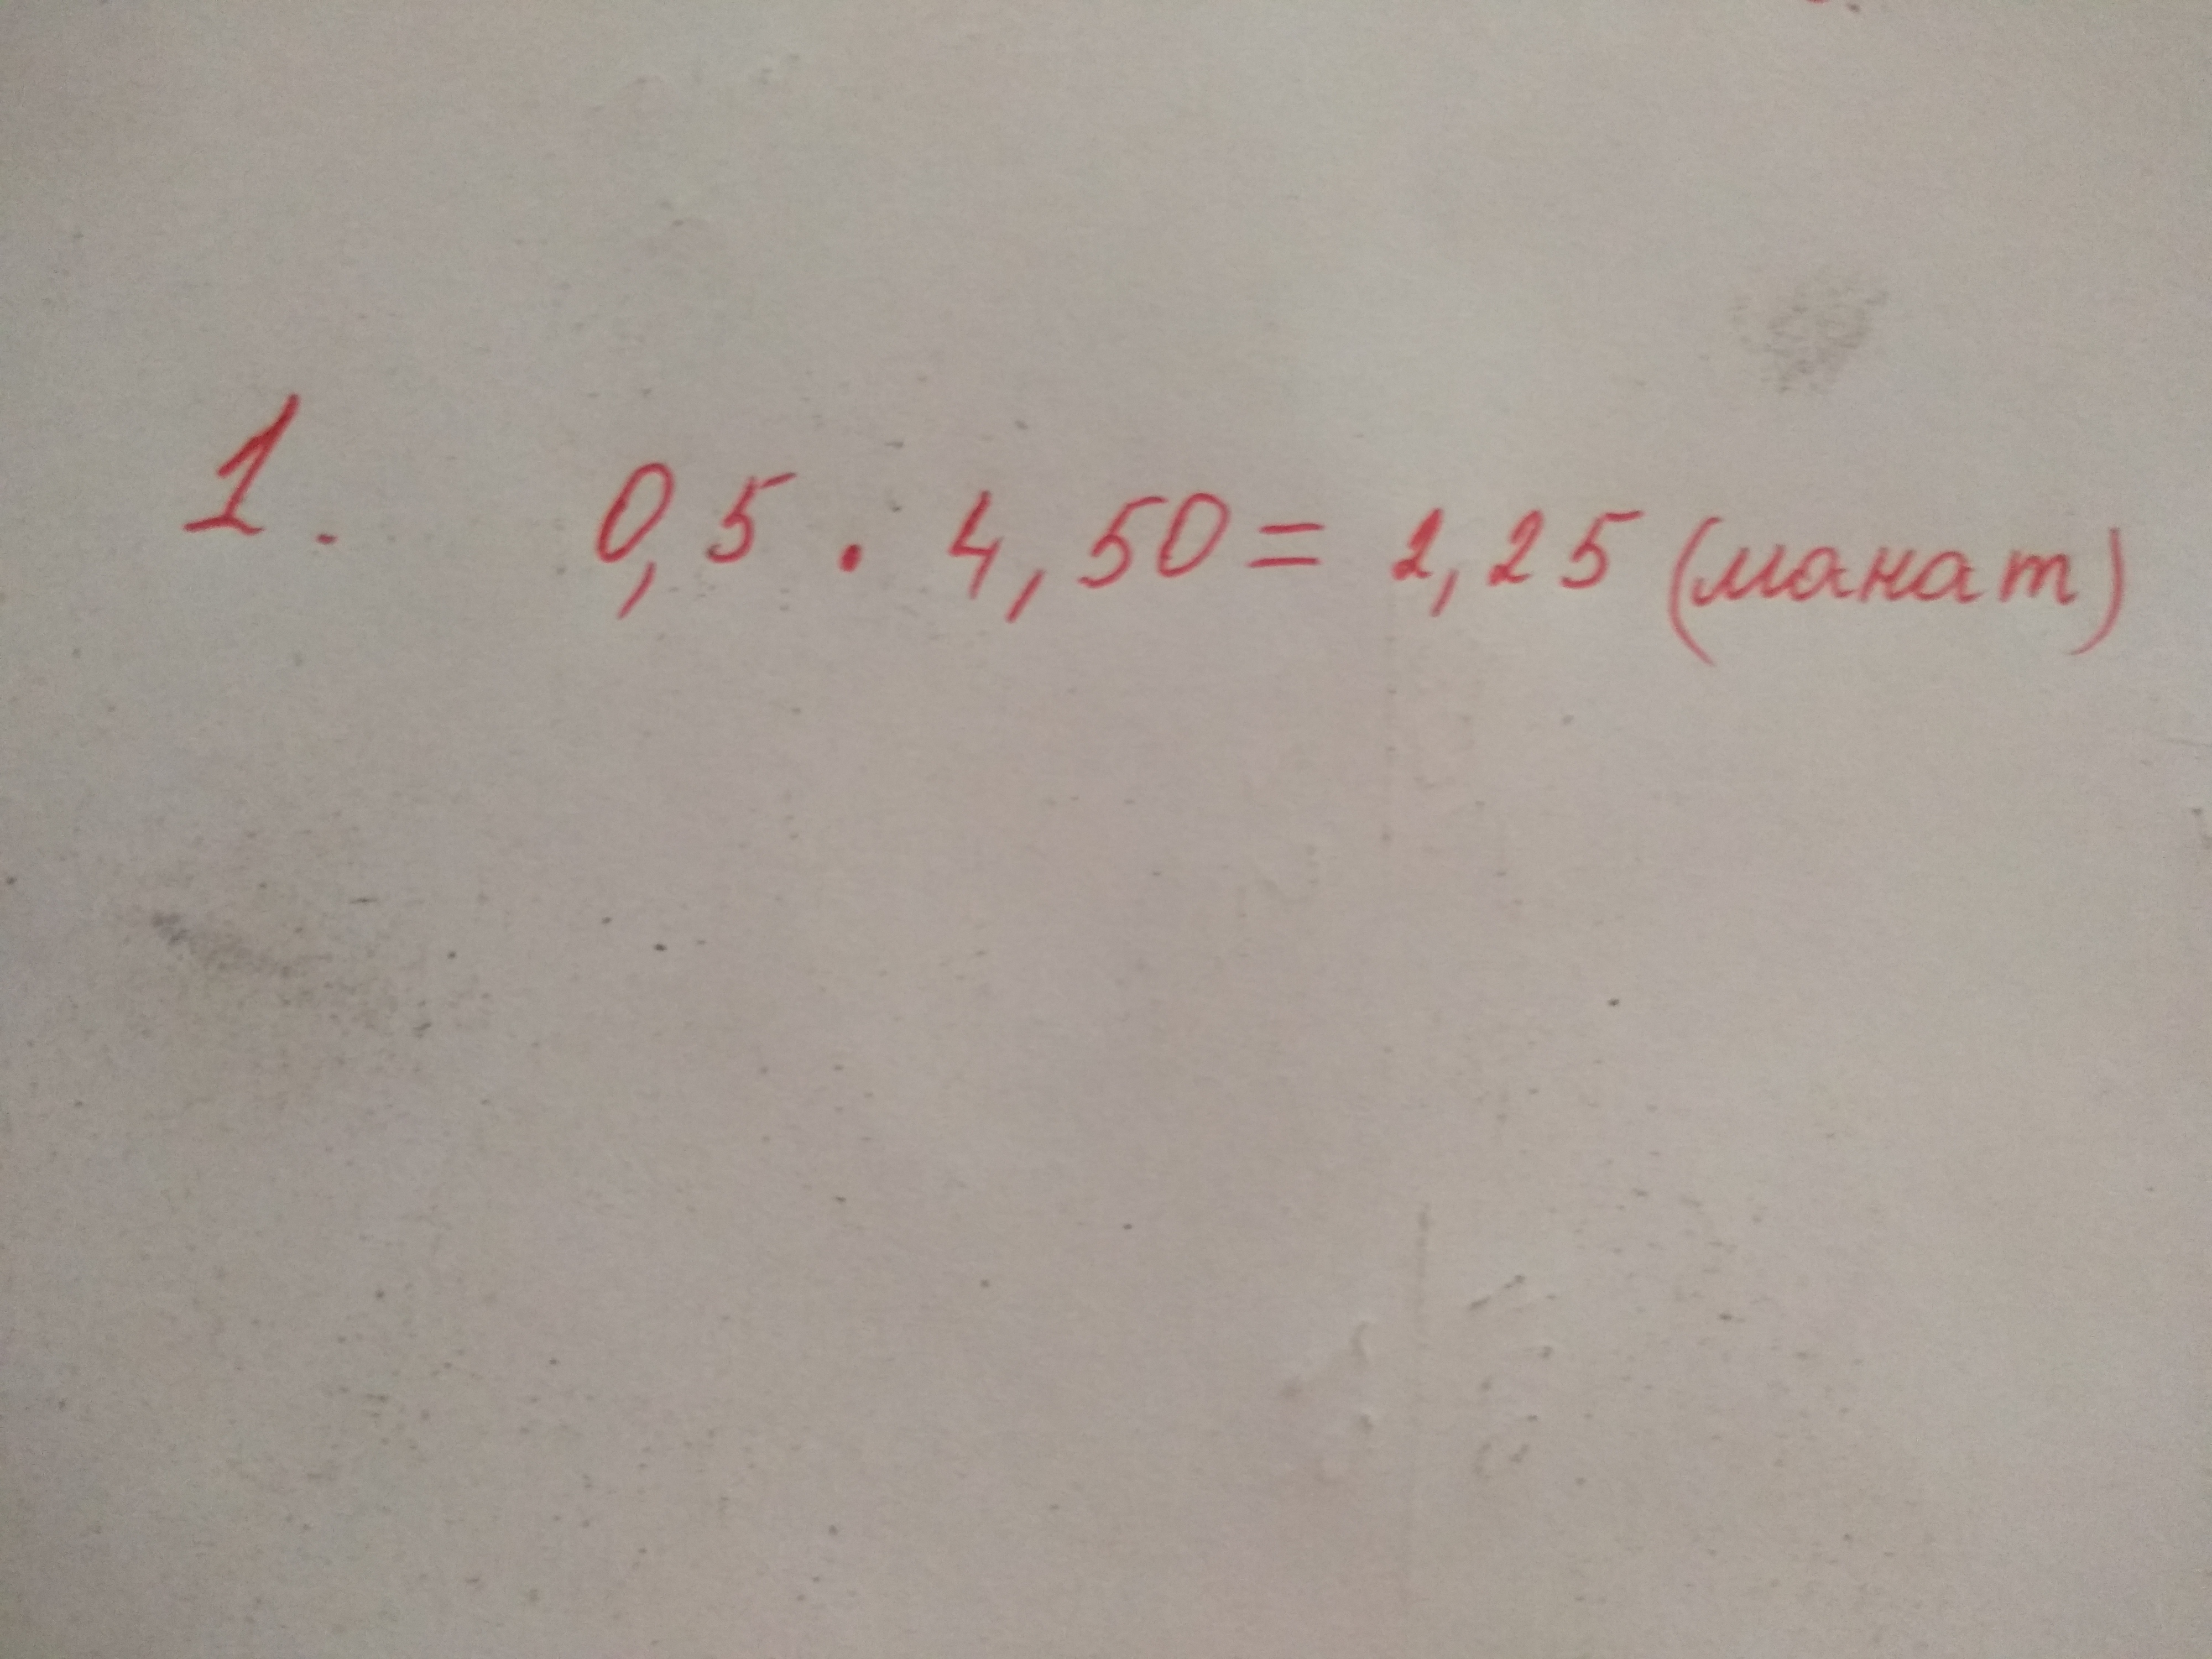 1. 0,5 · 4,50 = 2,25 (манат)